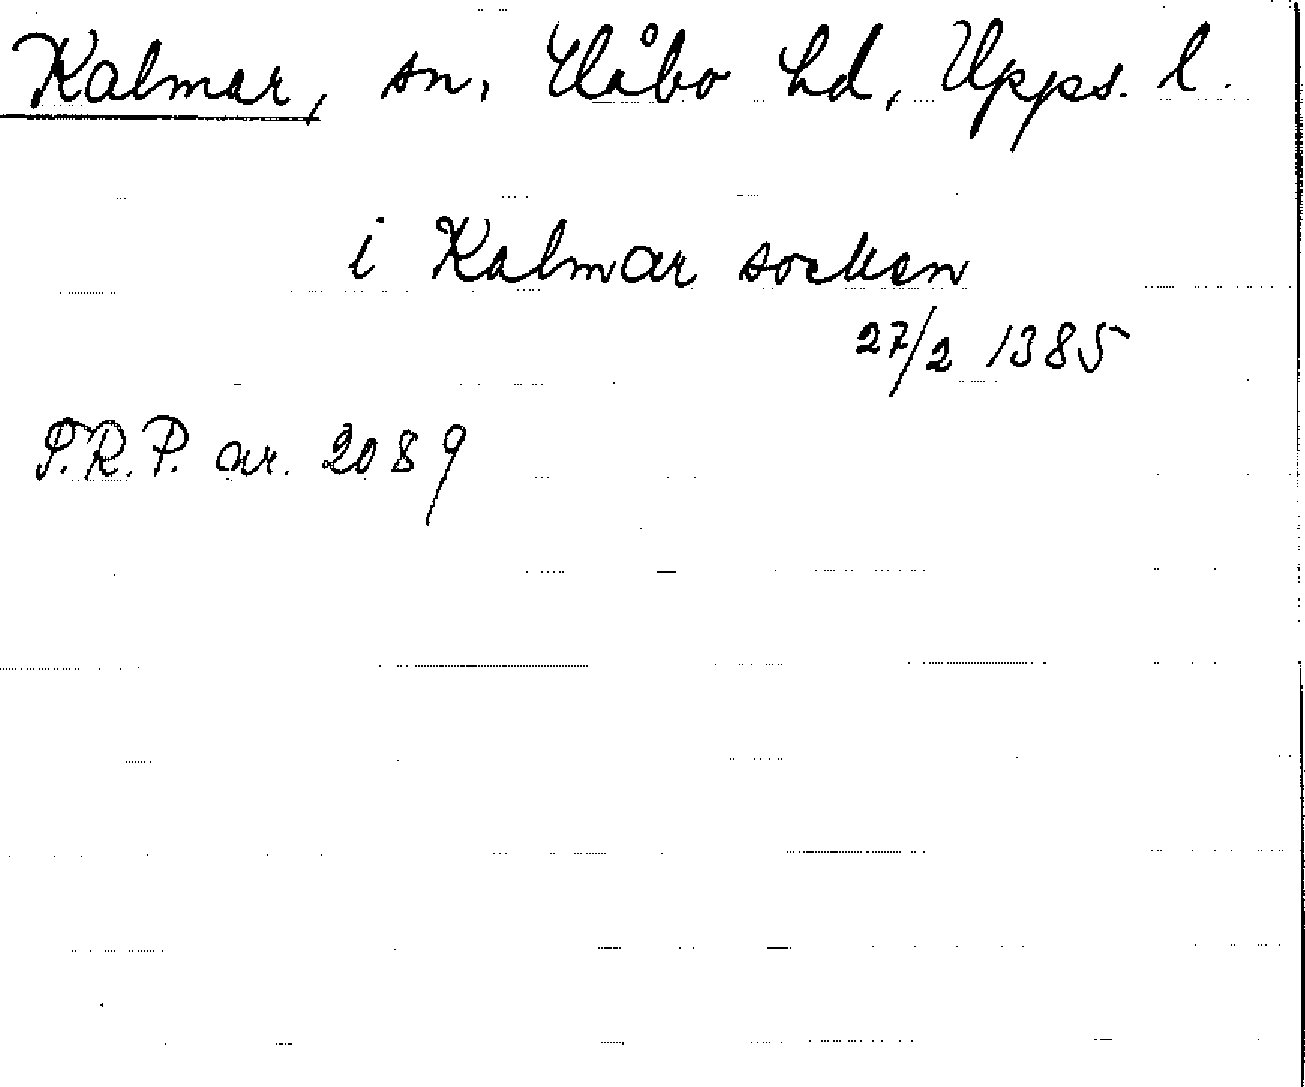 Kalmar, sn, Håbo hd, Upps. l.
i Kalmar socken
27/2 1385
S.R.P. nr. 2089